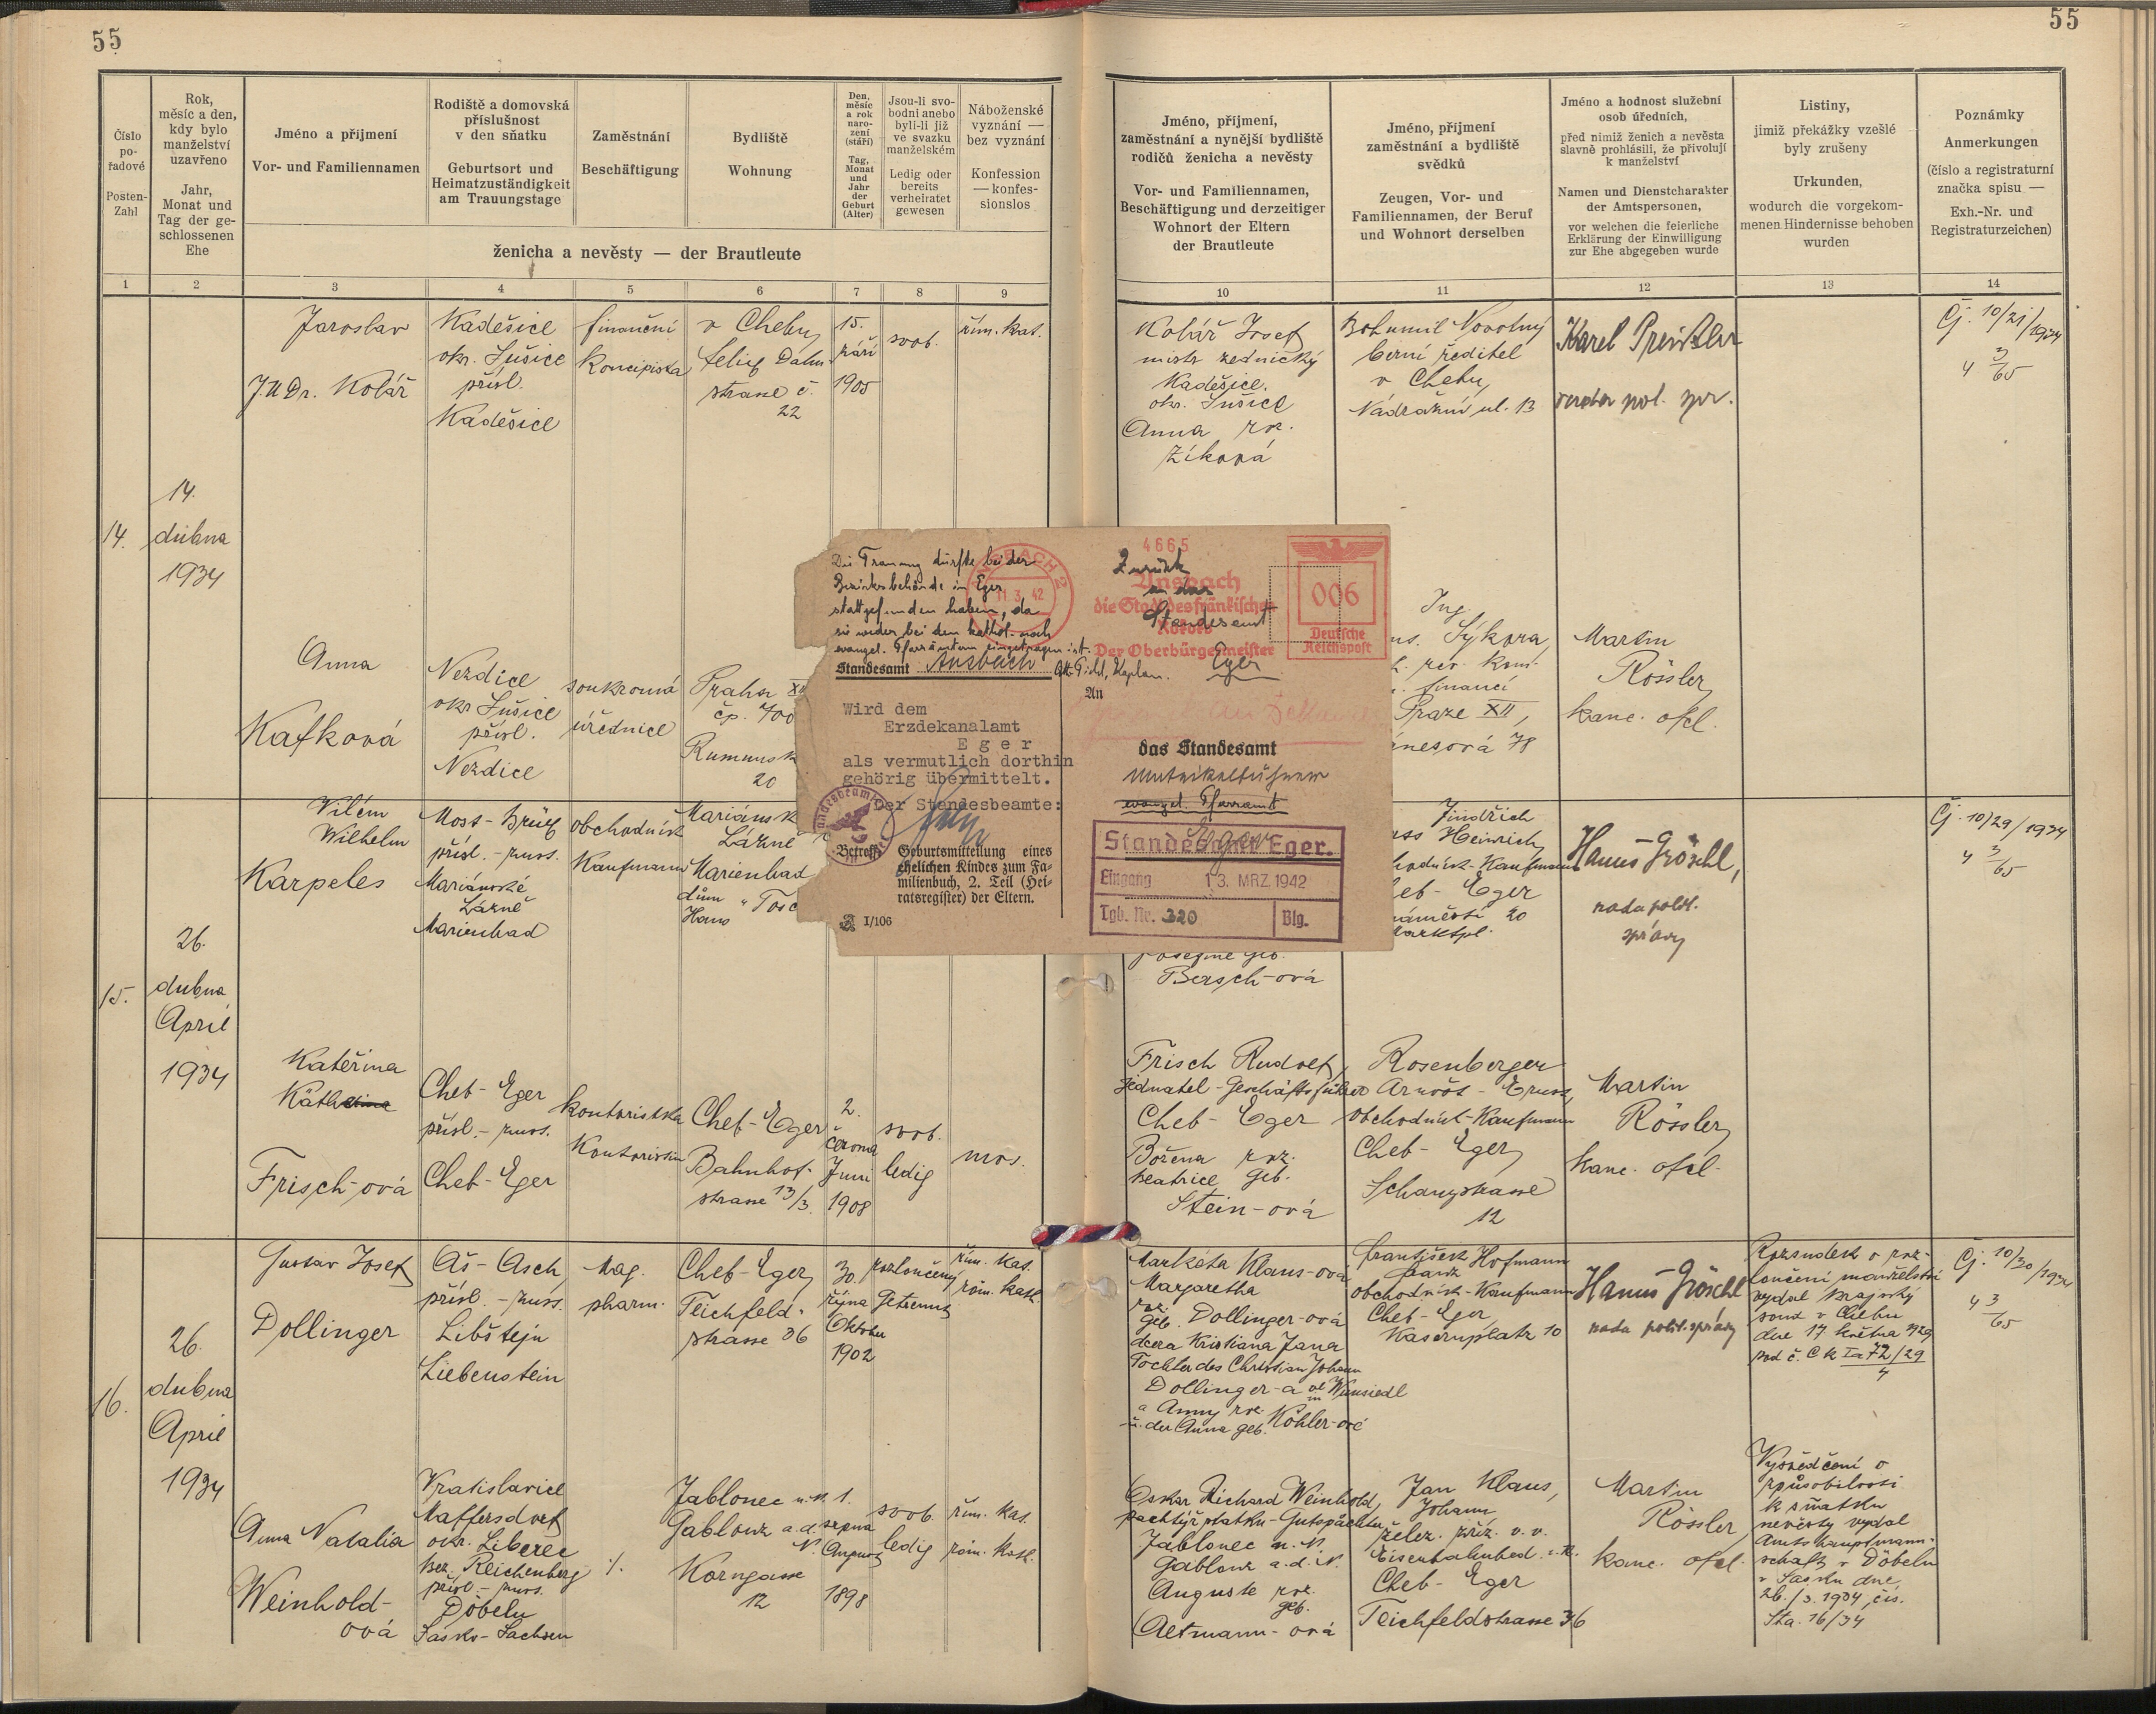 55
55
Číslo
po-
řadové
Posten-
Zahl
Rok,
měsíc a den,
kdy bylo
manželství
uzavřeno
Jahr,
Monat und
Tag der ge-
schlossenen
Ehe
Jméno a přijmení
Vor- und Familiennamen
Rodiště a domovská
příslušnost
v den sňatku
Geburtsort und
Heimatzuständigkeit
am Trauungstage
Zaměstnání
Beschäftigung
Bydliště
Wohnung
Den,
měsíc
a rok
naro-
zení
(stáří)
Tag,
Monat
und
Jahr
der
Geburt
(Alter)
Jsou-li svo-
bodni anebo
byli-li již
ve svazku
manželském
Ledig oder
bereits
verheiratet
gewesen
Náboženské
vyznání —
bez vyznání
Konfession
— konfes-
sionslos
ženicha a nevěsty — der Brautleute
Jméno, příjmení,
zaměstnání a nynější bydliště
rodičů ženicha a nevěsty
Vor- und Familiennamen,
Beschäftigung und derzeitiger
Wohnort der Eltern
der Brautleute
Jméno, příjmení
zaměstnání a bydliště
svědků
Zeugen, Vor- und
Familiennamen, der Beruf
und Wohnort derselben
Jméno a hodnost služební
osob úředních,
před nimiž ženich a nevěsta
slavně prohlásili, že přivolují
k manželství
Namen und Dienstcharakter
der Amtspersonen,
vor welchen die feierliche
Erklärung der Einwilligung
zur Ehe abgegeben wurde
Listiny,
jimiž překážky vzešlé
byly zrušeny
Urkunden,
wodurch die vorgekom-
menen Hindernisse behoben
wurden
Poznámky
Anmerkungen
(číslo a registraturní
značka spisu —
Exh.-Nr. und
Registraturzeichen)
1 2 3 4 5 6 7 8 9 10 11 12 13 14
14.
14.
dubna
1934
Jaroslav
J.U.Dr. Kolář
Kadešice
okr. Sušice
přísl.
Kadešice
finanční
koncipista
v Chebu
Felix Dahn
strasse č.
22
15.
září
1905
svob.
řím. kat.
Kolář Josef
mistr zednický
Kadešice.
okr. Sušice
Anna roz.
Zíková
Bohumil Novotný
berní ředitel
v Chebu,
Nádražní ul. 13
Karel
pol. spr.
Čj. 10/21/1934
4 3/65
Anna
Kafková
Nezdice
okr Sušice
přísl.
Nezdice
soukromá
úřednice
Praha
čp. 700
20
Ing.
Sýkora
rev. kom.
financí
Praze XII,
78
Martin
Rössler,
kanc. ofcl.
Die Trauung dürfte bei der
Bezirksbehörde in Eger
stattgefunden haben, da
sie weder bei dem kathol. noch
evangel. Pfarrämtern eingetragen ist.
Standesamt Ansbach
Wird dem
Erzdekanalamt
Eger
als vermutlich dorthin
gehörig übermittelt.
Der Standesbeamte:
Betreff:
Geburtsmitteilung eines
ehelichen Kindes zum Fa-
milienbuch, 2. Teil (Hei-
ratsregister) der Eltern.
I/106
ANSBACH 2
11 3. 42
4665
Ansbach
die Stadt des fränkischen
Rokoko
Der Oberbürgermeister
006
Deutsche
Reichspost
Zurück
an das
Standesamt
Eger
An
das Standesamt
Matrikelführer
evangel. Pfarramt
Eger
Standesamt Eger.
Eingang 13. MRZ. 1942
Tgb. Nr. 320 Blg.
15.
26.
dubna
April
1934
Vilém
Wilhelm
Karpeles
Most-Brüx
přísl. - zust.
Mariánské
Lázně
Marienbad
obchodník
Kaufmann
Mariánsk
Lázně
Marienbad
dům
Haus
Bersch-ová
Jindřich
Heinrich
Kaufmann
Eger
náměstí 20
Marktpl.
Hanuš Gröschl,
rada polit.
správy
Čj. 10/29/1934
4 3/65
Kateřina
Käthe
Frisch-ová
Cheb-Eger
přísl. - zust.
Cheb-Eger
kontoristka
Kontoristin
Cheb-Eger
Bahnhof-
strasse 13/3.
2.
června
Juni
1908
svob.
ledig
mos.
Frisch Rudolf,
jednatel-Geschäftsführer
Cheb-Eger
Božena roz.
Beatrice geb.
Stein-ová
Rosenberger
Arnošt-Ernst,
obchodník-Kaufmann
Cheb-Eger,
Schanzstrasse
12
Martin
Rössler,
kanc. ofcl.
16.
26.
dubna
April
1934
Gustav Josef
Dollinger
Aš-Asch,
přísl. - zust.
Libštejn
Liebenstein
Mag.
pharm.
Cheb-Eger,
Teichfeld-
strasse 36
30.
října
Oktober
1902
rozloučený
Getrennt
řím. kat.
röm. kath.
Markéta Klaus-ová
Margaretha
roz.
geb. Dollinger-ová
dcera Kristiana Jana
Tochter des Christian Johann
Dollinger-a ve Wunsiedl
in
a Anny roz. Köhler-ové
u. der Anna geb.
František Hofmann
Franz
obchodník-Kaufmann
Cheb-Eger,
Kasernplatz 10
Hanuš Gröschl
rada polit. správy
Rozsudek o roz-
loučení manželství
vydal krajský
soud v Chebu
dne 17 května 1929
pod č. Ck Ia 72/29
4
Čj. 10/30/1934
4 3/65
Anna Natalia
Weinhold-
ová
Vratislavice
Maffersdorf
okr. Liberec
bez. Reichenberg
přísl. - zust.
Döbeln
Sasko-Sachsen
./.
Jablonec n. N.
Gablonz a. d. N.
Korngasse
12
1.
srpna
August
1898
svob.
ledig
řím. kat.
röm. kath.
Oskar Richard Weinhold,
pachtýř statku-Gutspächter,
Jablonec n. N.
Gablonz a. d. N.
Auguste roz.
geb.
Altmann-ová
Jan Klaus,
Johann
želez. zříz. v. v.
Eisenbahnbed. i. R.
Cheb-Eger
Teichfeldstrasse 36
Martin
Rössler,
kanc. ofcl.
Vysvědčení o
způsobilosti
k sňatku
nevěsty vydal
Amtshauptmann-
schaft v Döbeln
v Sasku dne
26./3. 1934, čís.
Sta. 16/34